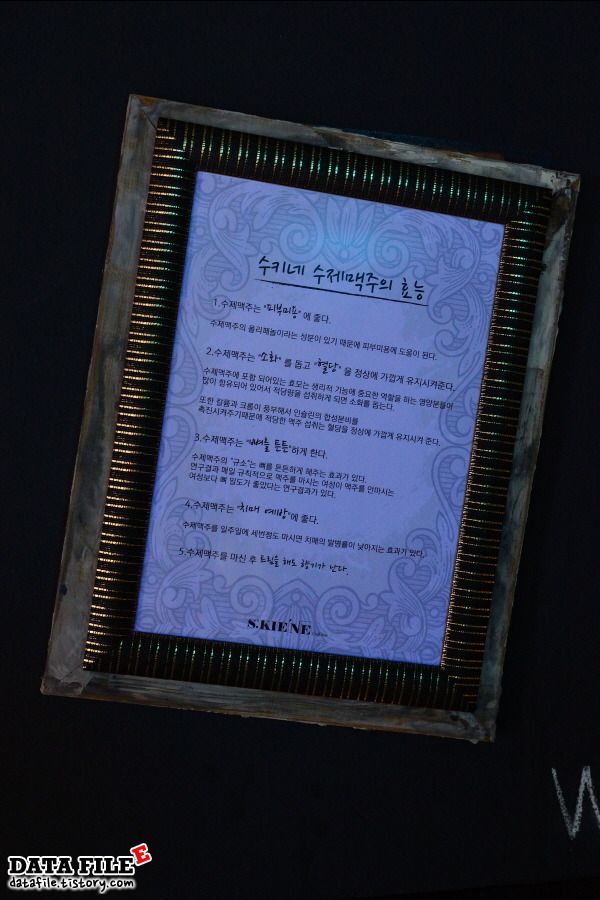 수키네 수제맥주의 효능
1.수제맥주는 "피부미용"에 좋다.
수제맥주의 폴리패놀이라는 성분이 있기 때문에 피부미용에 도움이 된다.
2.수제맥주는 "소화"를 돕고 "혈당"을 정상에 가깝게 유지시켜준다.
수제맥주에 포함 되어있는 효모는 생리적 기능에 중요한 역할을 하는 영양분들이
많이 함유되어 있어서 적당량을 섭취하게 되면 소화를 돕는다.
또한 칼륨과 크롬이 풍부해서 인슐린의 합성분비를
촉진시켜주기때문에 적당한 맥주 섭취는 혈당을 정상에 가깝게 유지시켜 준다.
3.수제맥주는 "뼈를 튼튼"하게 한다.
수제맥주의 "규소"는 뼈를 튼튼하게 해주는 효과가 있다.
연구결과 매일 규칙적으로 맥주를 마시는 여성이 맥주를 안마시는
여성보다 뼈 밀도가 좋았다는 연구결과가 있다.
4.수제맥주는 "치매 예방"에 좋다.
수제맥주를 일주일에 세번정도 마시면 치매의 발병률이 낮아지는 효과가 있다.
5.수제맥주를 마신 후 트림을 해도 향기가 난다.
S.KIE'NE
W
DATA FILE E
datafile.tistory.com